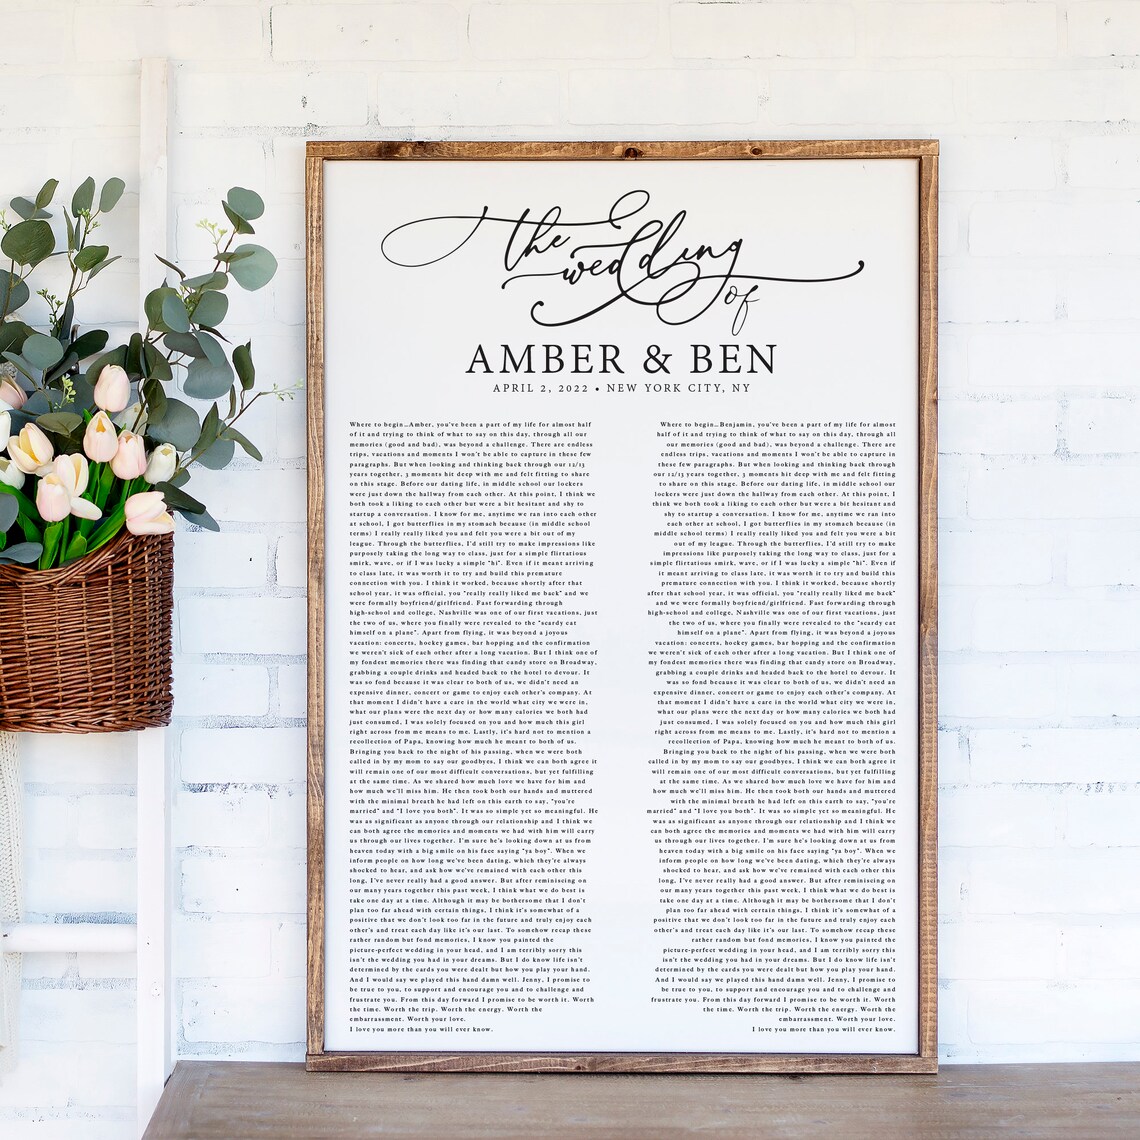 the
wedding
of
AMBER & BEN
APRIL 2, 2022 • NEW YORK CITY, NY
Where to begin...Amber, you've been a part of my life for almost half
of it and trying to think of what to say on this day, through all our
memories (good and bad), was beyond a challenge. There are endless
trips, vacations and moments I won't be able to capture in these few
paragraphs. But when looking and thinking back through our 12/13
years together, 3 moments hit deep with me and felt fitting to share
on this stage. Before our dating life, in middle school our lockers
were just down the hallway from each other. At this point, I think we
both took a liking to each other but were a bit hesitant and shy to
startup a conversation. I know for me, anytime we ran into each other
at school, I got butterflies in my stomach because (in middle school
terms) I really really liked you and felt you were a bit out of my
league. Through the butterflies, I'd still try to make impressions like
purposely taking the long way to class, just for a simple flirtatious
smirk, wave, or if I was lucky a simple "hi". Even if it meant arriving
to class late, it was worth it to try and build this premature
connection with you. I think it worked, because shortly after that
school year, it was official, you "really really liked me back" and we
were formally boyfriend/girlfriend. Fast forwarding through
high-school and college, Nashville was one of our first vacations, just
the two of us, where you finally were revealed to the "scardy cat
himself on a plane". Apart from flying, it was beyond a joyous
vacation: concerts, hockey games, bar hopping and the confirmation
we weren't sick of each other after a long vacation. But I think one of
my fondest memories there was finding that candy store on Broadway,
grabbing a couple drinks and headed back to the hotel to devour. It
was so fond because it was clear to both of us, we didn't need an
expensive dinner, concert or game to enjoy each other's company. At
that moment I didn't have a care in the world what city we were in,
what our plans were the next day or how many calories we both had
just consumed, I was solely focused on you and how much this girl
right across from me means to me. Lastly, it's hard not to mention a
recollection of Papa, knowing how much he meant to both of us.
Bringing you back to the night of his passing, when we were both
called in by my mom to say our goodbyes, I think we can both agree it
will remain one of our most difficult conversations, but yet fulfilling
at the same time. As we shared how much love we have for him and
how much we'll miss him. He then took both our hands and muttered
with the minimal breath he had left on this earth to say, "you're
married" and "I love you both". It was so simple yet so meaningful. He
was as significant as anyone through our relationship and I think we
can both agree the memories and moments we had with him will carry
us through our lives together. I'm sure he's looking down at us from
heaven today with a big smile on his face saying "ya boy". When we
inform people on how long we've been dating, which they're always
shocked to hear, and ask how we've remained with each other this
long, I've never really had a good answer. But after reminiscing on
our many years together this past week, I think what we do best is
take one day at a time. Although it may be bothersome that I don't
plan too far ahead with certain things, I think it's somewhat of a
positive that we don't look too far in the future and truly enjoy each
other's and treat each day like it's our last. To somehow recap these
rather random but fond memories, I know you painted the
picture-perfect wedding in your head, and I am terribly sorry this
isn't the wedding you had in your dreams. But I do know life isn't
determined by the cards you were dealt but how you play your hand.
And I would say we played this hand damn well. Jenny, I promise to
be true to you, to support and encourage you and to challenge and
frustrate you. From this day forward I promise to be worth it. Worth
the time. Worth the trip. Worth the energy. Worth the
embarrassment. Worth your love.
I love you more than you will ever know.
Where to begin...Benjamin, you've been a part of my life for almost
half of it and trying to think of what to say on this day, through all
our memories (good and bad), was beyond a challenge. There are
endless trips, vacations and moments I won't be able to capture in
these few paragraphs. But when looking and thinking back through
our 12/13 years together, 3 moments hit deep with me and felt fitting
to share on this stage. Before our dating life, in middle school our
lockers were just down the hallway from each other. At this point, I
think we both took a liking to each other but were a bit hesitant and
shy to startup a conversation. I know for me, anytime we ran into
each other at school, I got butterflies in my stomach because (in
middle school terms) I really really liked you and felt you were a bit
out of my league. Through the butterflies, I'd still try to make
impressions like purposely taking the long way to class, just for a
simple flirtatious smirk, wave, or if I was lucky a simple "hi". Even if
it meant arriving to class late, it was worth it to try and build this
premature connection with you. I think it worked, because shortly
after that school year, it was official, you "really really liked me back"
and we were formally boyfriend/girlfriend. Fast forwarding through
high-school and college, Nashville was one of our first vacations, just
the two of us, where you finally were revealed to the "scardy cat
himself on a plane". Apart from flying, it was beyond a joyous
vacation: concerts, hockey games, bar hopping and the confirmation
we weren't sick of each other after a long vacation. But I think one of
my fondest memories there was finding that candy store on Broadway,
grabbing a couple drinks and headed back to the hotel to devour. It
was so fond because it was clear to both of us, we didn't need an
expensive dinner, concert or game to enjoy each other's company. At
that moment I didn't have a care in the world what city we were in,
what our plans were the next day or how many calories we both had
just consumed, I was solely focused on you and how much this girl
right across from me means to me. Lastly, it's hard not to mention a
recollection of Papa, knowing how much he meant to both of us.
Bringing you back to the night of his passing, when we were both
called in by my mom to say our goodbyes, I think we can both agree it
will remain one of our most difficult conversations, but yet fulfilling
at the same time. As we shared how much love we have for him and
how much we'll miss him. He then took both our hands and muttered
with the minimal breath he had left on this earth to say, "you're
married" and "I love you both". It was so simple yet so meaningful. He
was as significant as anyone through our relationship and I think we
can both agree the memories and moments we had with him will carry
us through our lives together. I'm sure he's looking down at us from
heaven today with a big smile on his face saying "ya boy". When we
inform people on how long we've been dating, which they're always
shocked to hear, and ask how we've remained with each other this
long, I've never really had a good answer. But after reminiscing on
our many years together this past week, I think what we do best is
take one day at a time. Although it may be bothersome that I don't
plan too far ahead with certain things, I think it's somewhat of a
positive that we don't look too far in the future and truly enjoy each
other's and treat each day like it's our last. To somehow recap these
rather random but fond memories, I know you painted the
picture-perfect wedding in your head, and I am terribly sorry this
isn't the wedding you had in your dreams. But I do know life isn't
determined by the cards you were dealt but how you play your hand.
And I would say we played this hand damn well. Jenny, I promise to
be true to you, to support and encourage you and to challenge and
frustrate you. From this day forward I promise to be worth it. Worth
the time. Worth the trip. Worth the energy. Worth the
embarrassment. Worth your love.
I love you more than you will ever know.